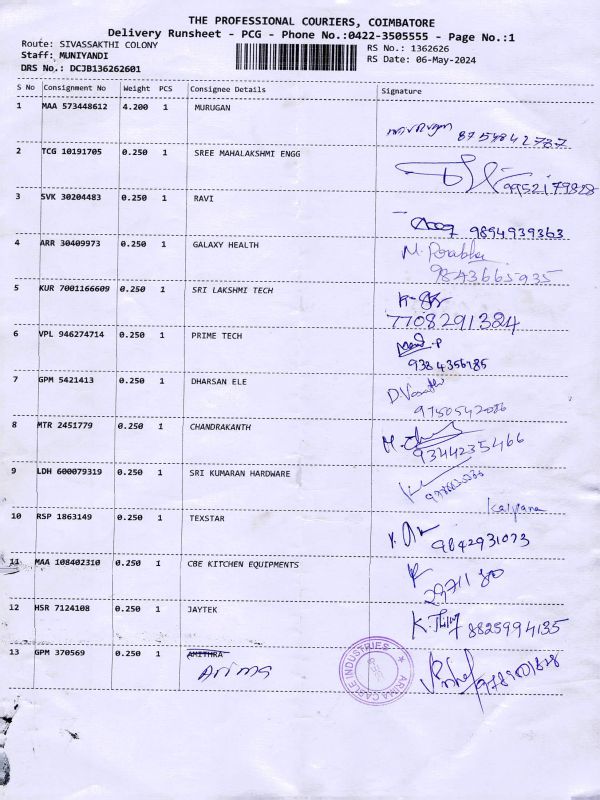 THE PROFESSIONAL COURIERS, COIMBATORE
Delivery Runsheet - PCG - Phone No.:0422-3505555 - Page No.:1
Route: SIVASSAKTHI COLONY
RS No.: 1362626
Staff: MUNIYANDI
RS Date: 06-May-2024
DRS No.: DCJB136262601
S No Consignment No Weight PCS Consignee Details Signature
1 MAA 573448612 4.200 1 MURUGAN
murugan 8754842787
2 TCG 10191705 0.250 1 SREE MAHALAKSHMI ENGG
9952179328
3 SVK 30204483 0.250 1 RAVI
9894939363
4 ARR 30409973 0.250 1 GALAXY HEALTH
M. Prabhu
9843665935
5 KUR 7001166609 0.250 1 SRI LAKSHMI TECH
7708291324
6 VPL 946274714 0.250 1 PRIME TECH
9384356985
7 GPM 5421413 0.250 1 DHARSAN ELE
9750542086
8 MTR 2451779 0.250 1 CHANDRAKANTH
9344235466
9 LDH 600079319 0.250 1 SRI KUMARAN HARDWARE
Kalpana
10 RSP 1863149 0.250 1 TEXSTAR
9842931073
11 MAA 108402310 0.250 1 CBE KITCHEN EQUIPMENTS
12 HSR 7124108 0.250 1 JAYTEK
8825994135
13 GPM 370569 0.250 1 AMITHRA
Arima